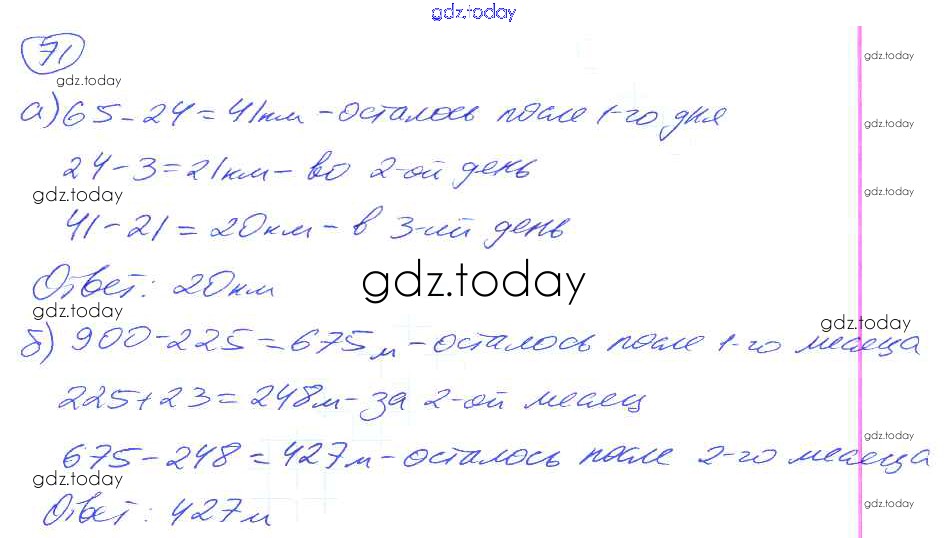 gdz.today
71
gdz.today
gdz.today
а) 65-24=41км-осталось после 1-го дня
gdz.today
24-3=21км-во 2-ой день
gdz.today
gdz.today
41-21=20км-в 3-ий день
Ответ: 20км
gdz.today
gdz.today
gdz.today
б) 900-225=675м-осталось после 1-го месяца
225+23=248м-за 2-ой месяц
gdz.today
675-248=427м-осталось после 2-го месяца
gdz.today
Ответ: 427м
gdz.today